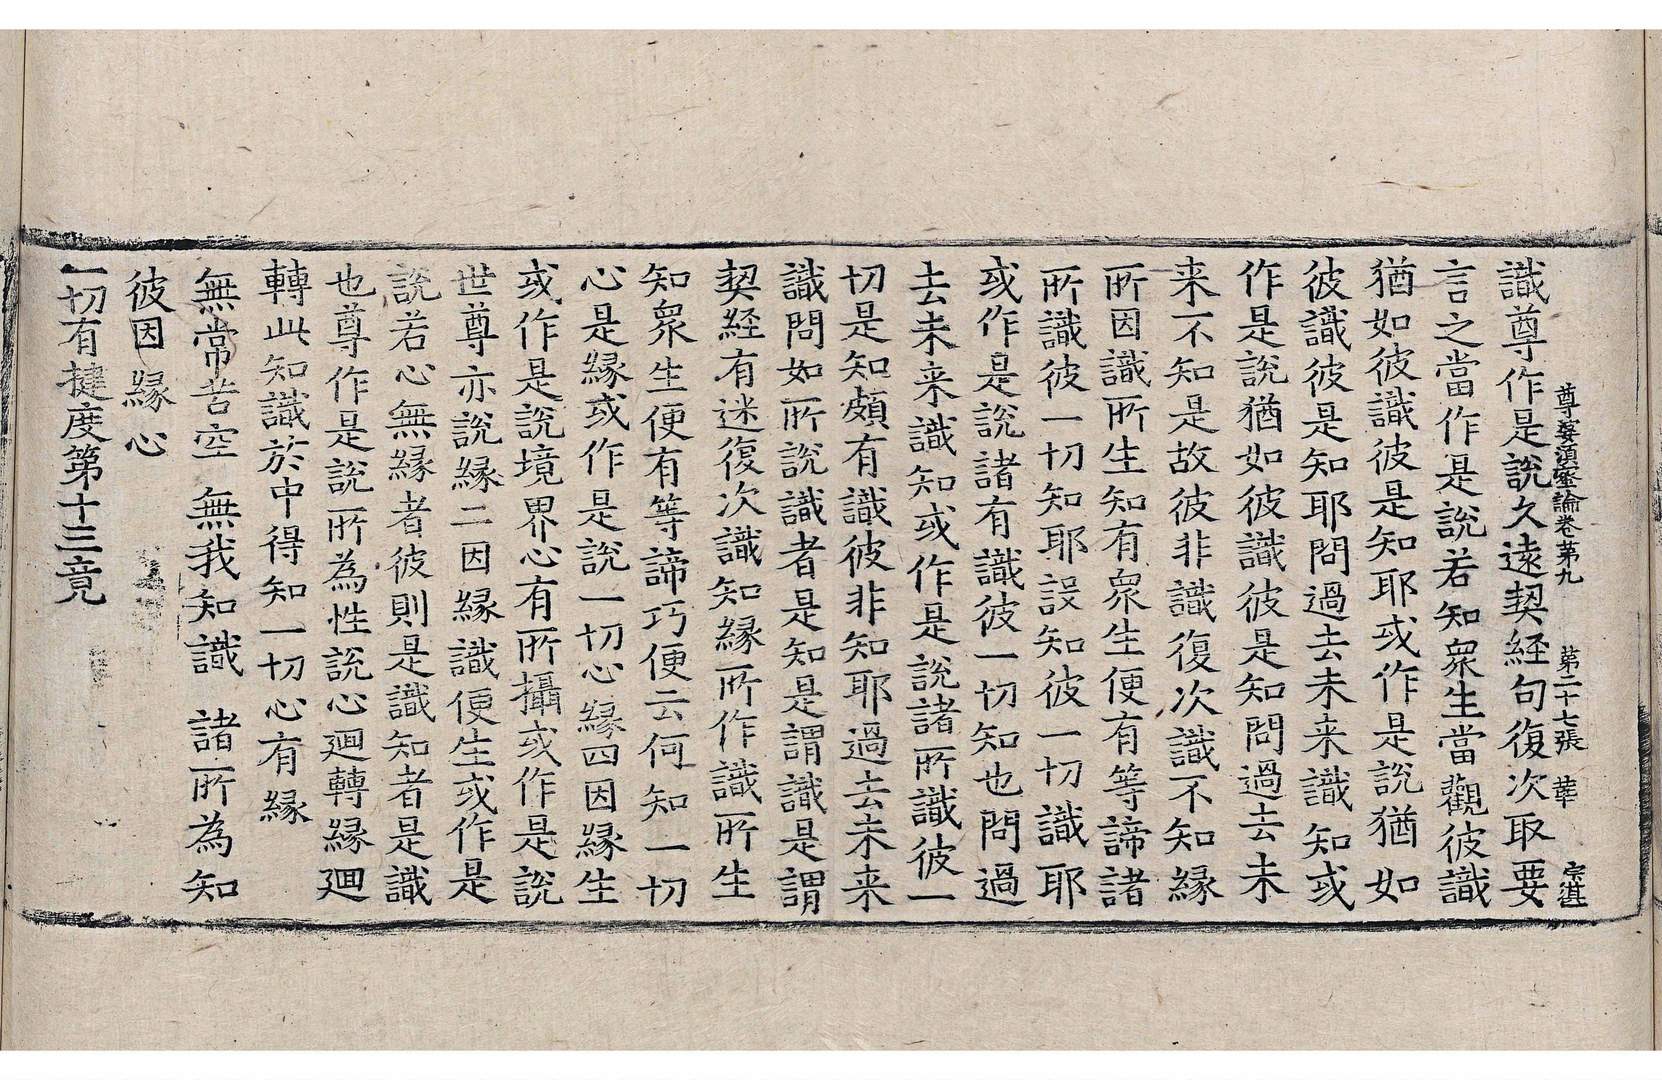 尊婆須蜜論卷第九 第二十七張 華 宗湛
識尊作是說久遠契経句復次取要
言之當作是說若知衆生當觀彼識
猶如彼識彼是知耶或作是說猶如
彼識彼是知耶問過去未来識知或
作是說猶如彼識彼是知問過去未
来不知是故彼非識復次識不知縁
所因識所生知有衆生便有等諦諸
所識彼一切知耶設知彼一切識耶
或作是說諸有識彼一切知也問過
去未来識知或作是說諸所識彼一
切是知頗有識彼非知耶過去未来
識問如所說識者是知是謂識是謂
契経有迷復次識知縁所作識所生
知衆生便有等諦巧便云何知一切
心是縁或作是說一切心縁四因縁生
或作是說境界心有所攝或作是說
世尊亦說縁二因縁識便生或作是
說若心無縁者彼則是識知者是識
也尊作是說所為性說心廻轉縁廻
轉此知識於中得知一切心有縁
無常苦空 無我知識 諸所為知
彼因縁心
一切有揵度第十三竟